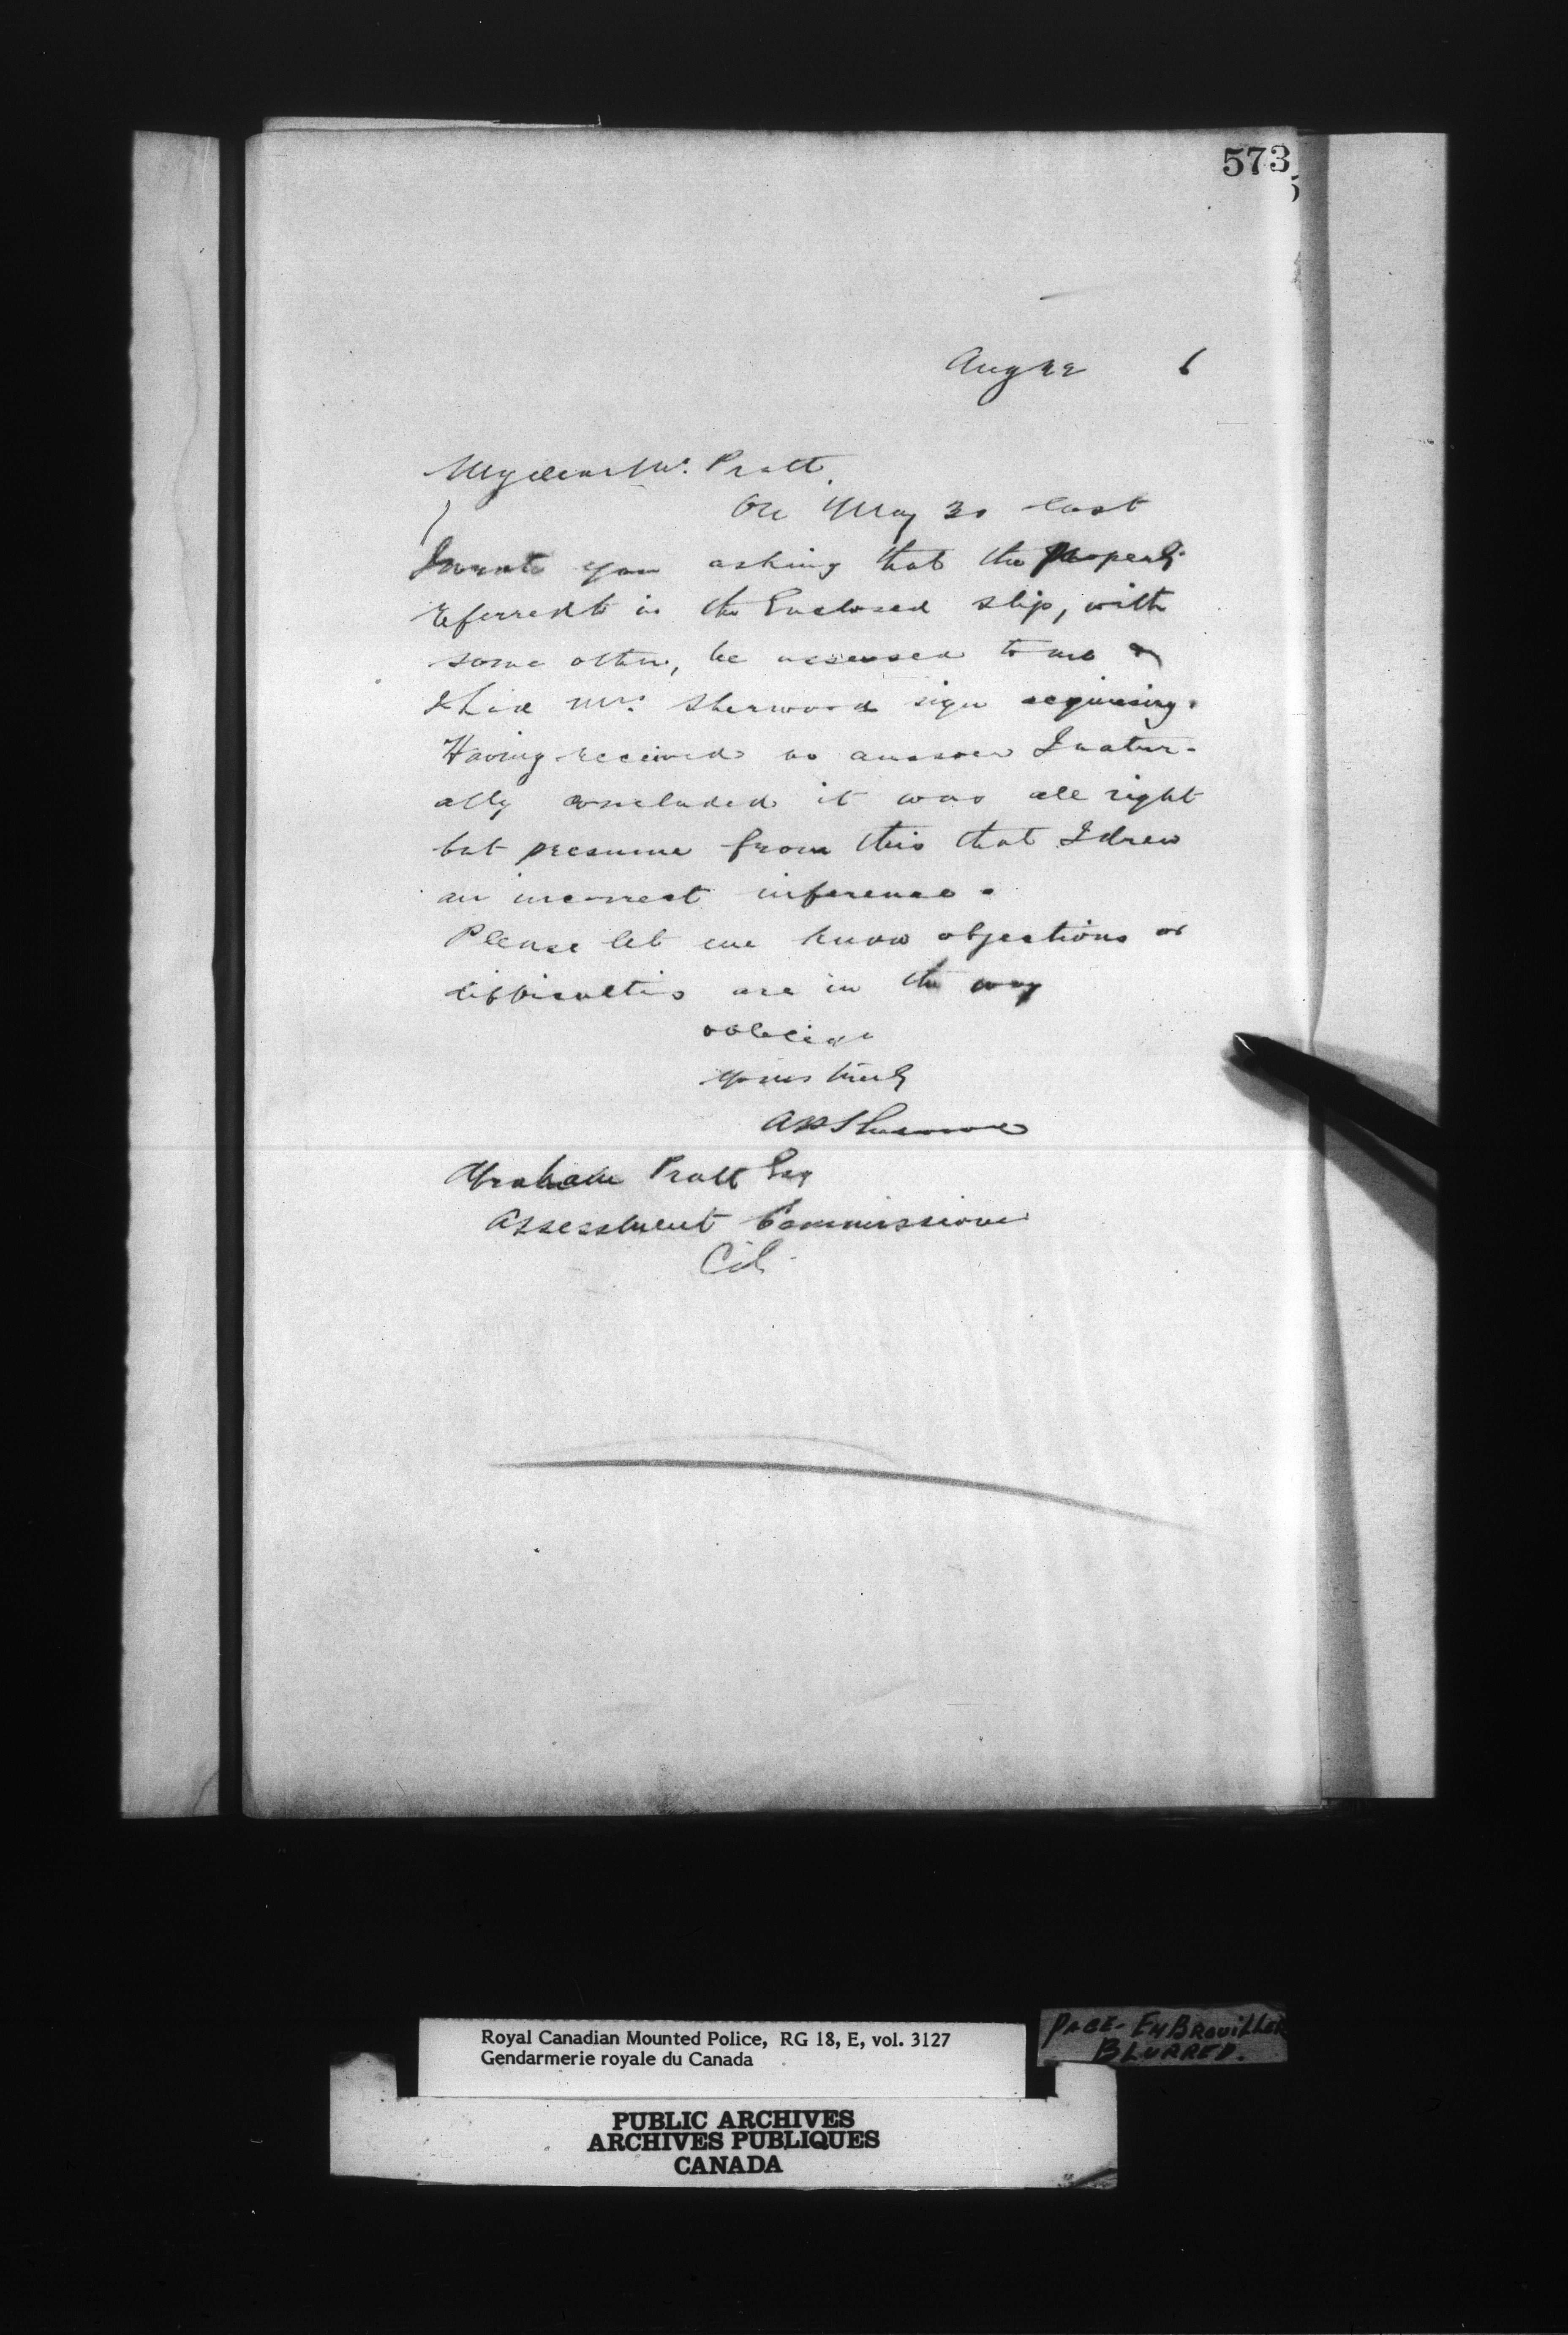 573
Aug 22 6
My dear Mr. Pratt
On May 30 last
I wrote you asking that the property
referred to in the Enclosed slip, with
some other, be assessed to me &
I had Mrs. Sherwood sign
Having received no answer I natur-
ally concluded it was all right
but presume from this that I drew
an incorrect inference.
Please let me know objections or
difficulties are in the way
oblige
Yours truly
AP Sherwood
Abraham Pratt Esq
Assessment Commissioner
City
Royal Canadian Mounted Police, RG 18, E, vol. 3127
Gendarmerie royale du Canada
PAGE - EMBROUILLER
BLURRED.
PUBLIC ARCHIVES
ARCHIVES PUBLIQUES
CANADA